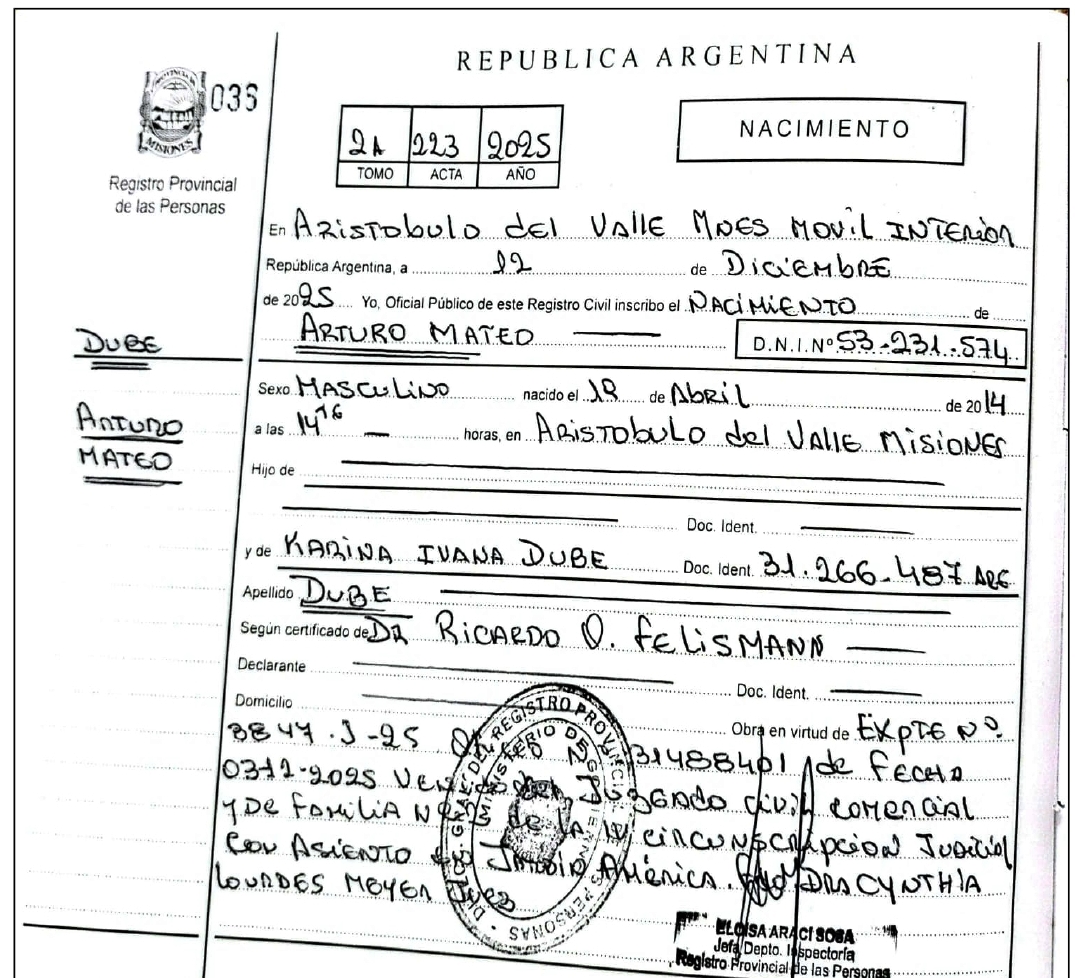 REPUBLICA ARGENTINA
PROVINCIA DE
MISIONES
036
Registro Provincial
de las Personas
2A 223 2025
TOMO ACTA AÑO
NACIMIENTO
En ARISTOBULO dEL VAllE MNES MOVIL INTERIOR
República Argentina, a 12 de DiCiEMbRE
de 2025 Yo, Oficial Público de este Registro Civil inscribo el NACiMiENTO de
ARTURO MATEO
D.N.I. Nº 53-231-574
DUBE
ARTURO
MATEO
Sexo MASCULiNO nacido el 18 de AbRiL de 2014
a las 14 16 horas, en ARISTOBULO del VAllE MiSiONES
Hijo de
Doc. Ident.
y de KARiNA IVANA DUBE Doc. Ident. 31.266.487 ARG
Apellido DUBE
Según certificado de DR RiCARDO O. FELiSMANN
Declarante Doc. Ident.
Domicilio
Obra en virtud de EXPTE Nº
3847-J-25 31488401 de FECHA
03-12-2025 JUZGADO CiViL COMERCiAL
Y DE FAMiLiA de LA IV CiRCUNSCRiPCiON JUDiCiAL
CON ASiENTO JARDiN AMÉRiCA. DRA CYNTHiA
LOURDES MEYER JUEZ
DIREC. GRAL. DEL REGISTRO PROVINCIAL DE LAS PERSONAS
MINISTERIO DE GOBIERNO
ELOISA ARACI SOSA
Jefa Depto. Inspectoría
Registro Provincial de las Personas